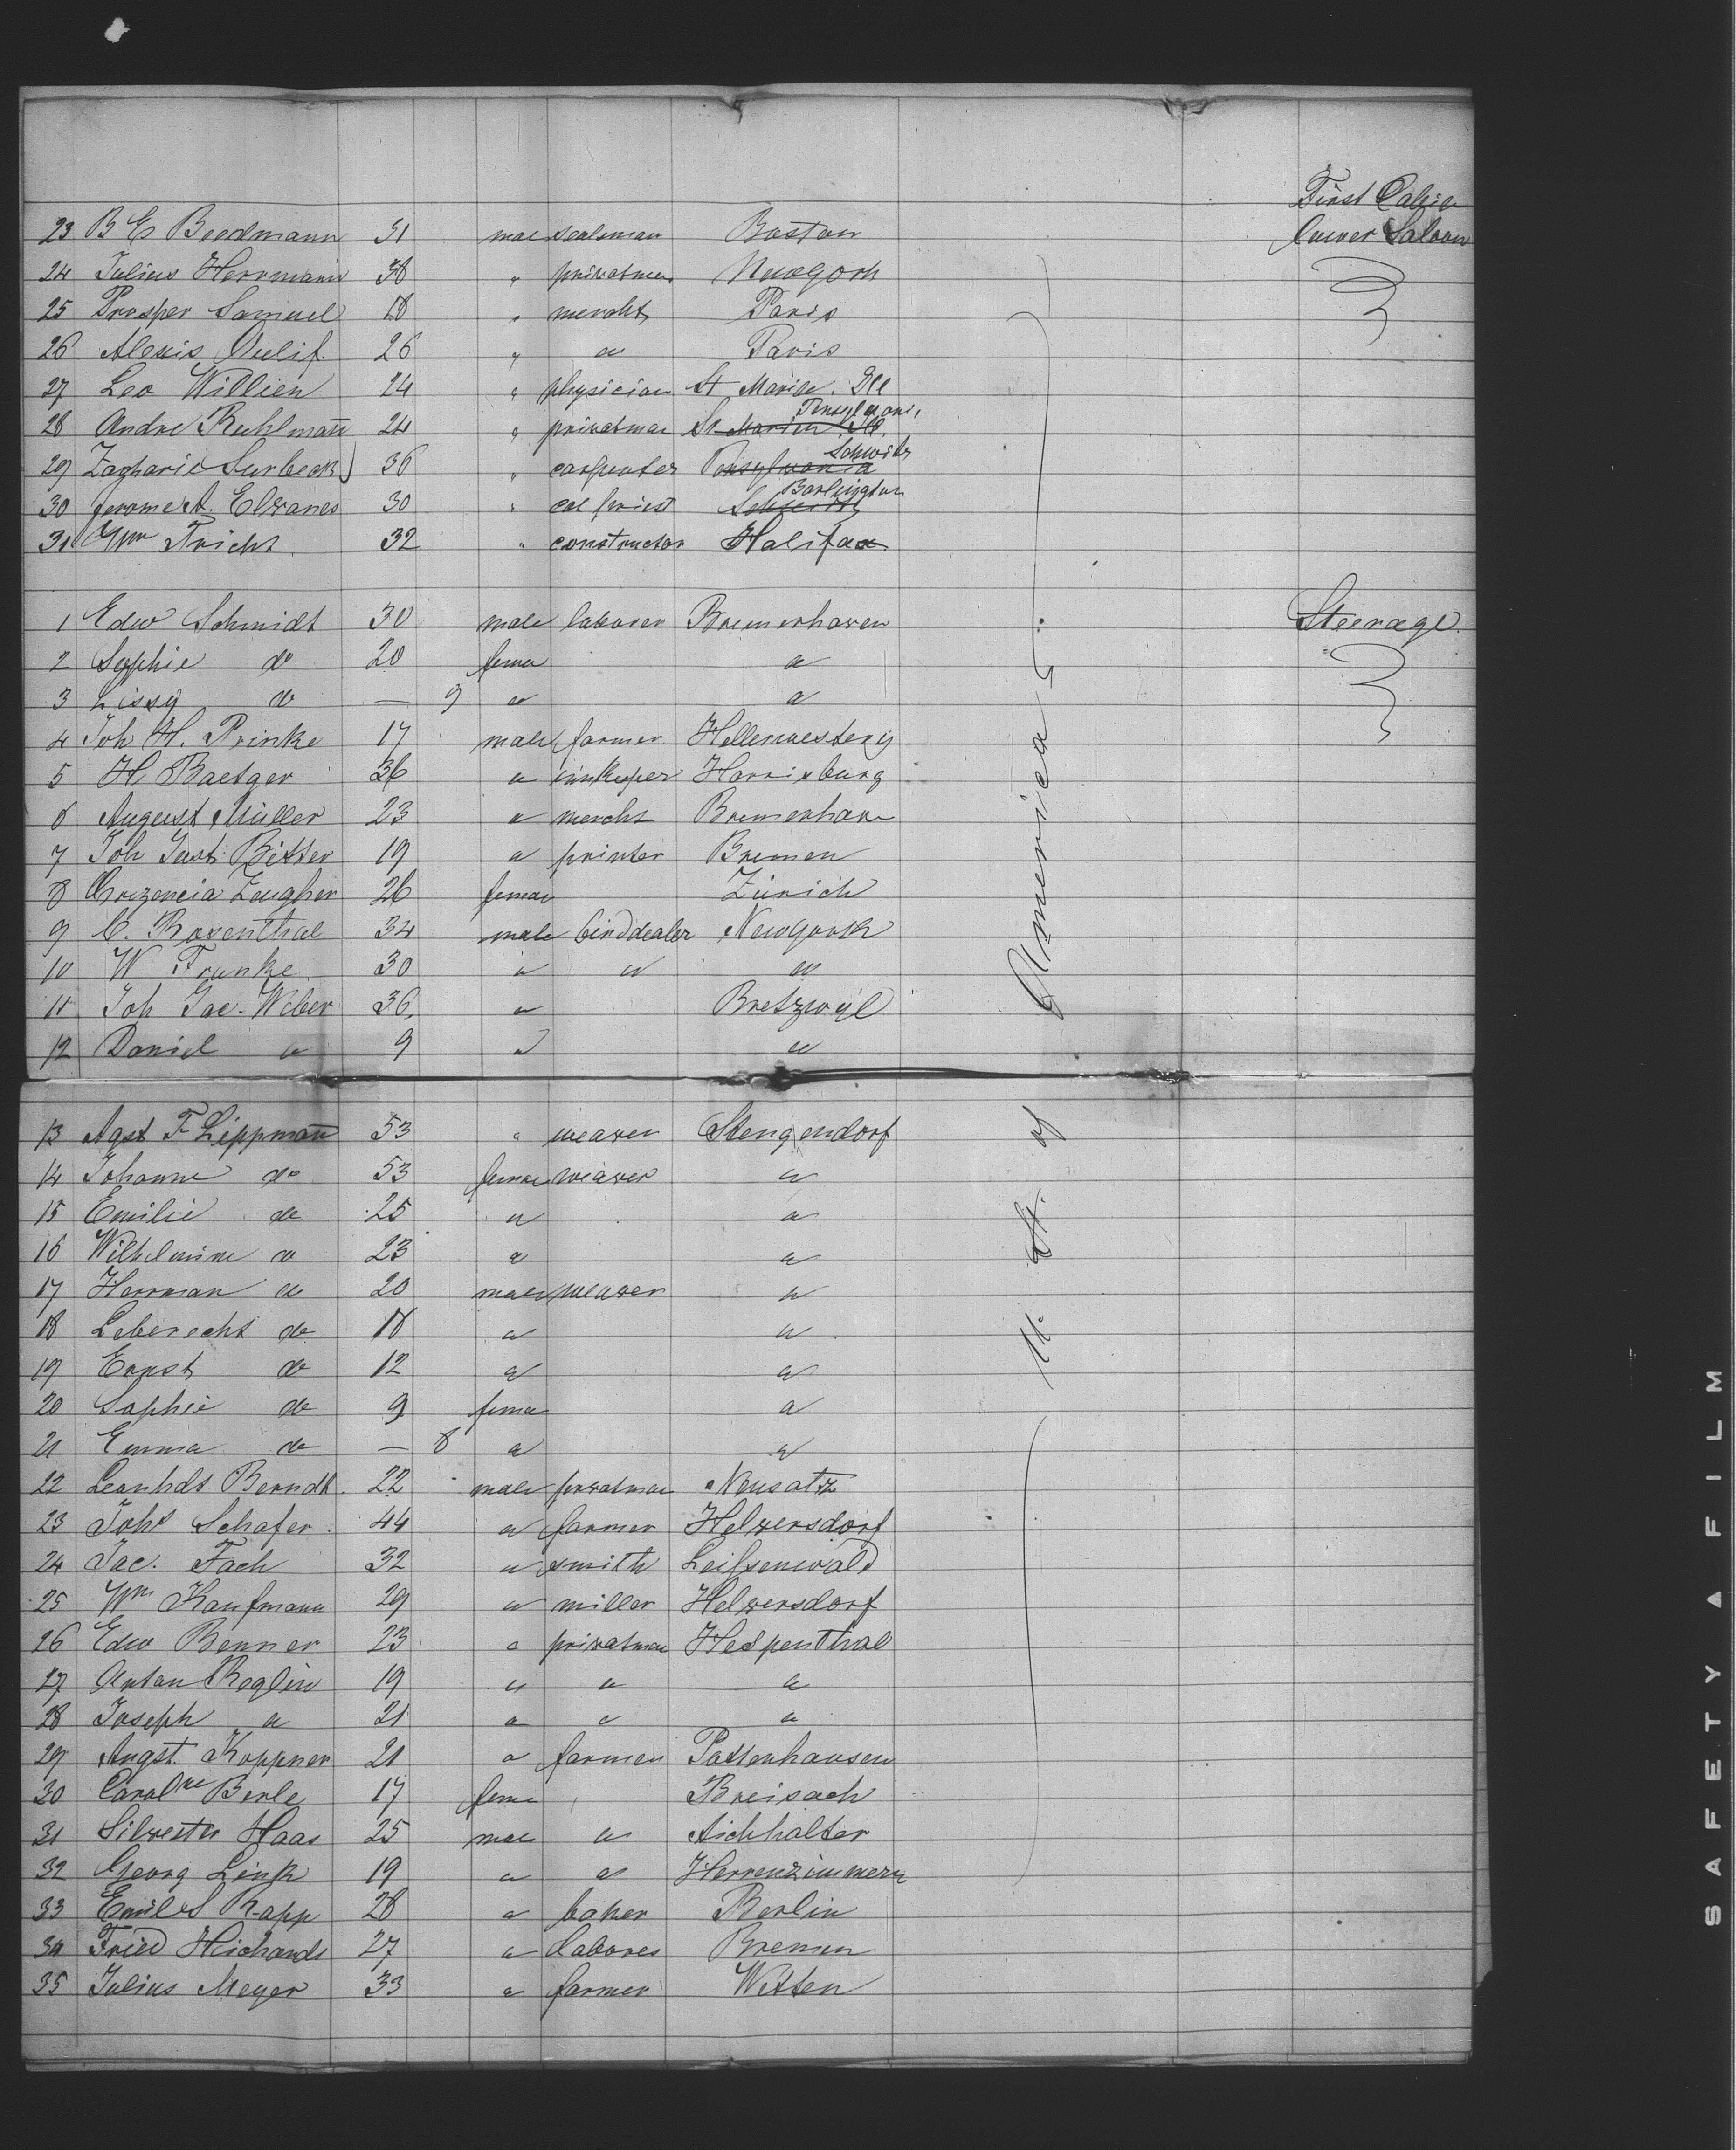 First Cabin
Lower Saloon
23 B E Beedmann 31 mae sealsman Boston
24 Julius Herrmann 38 " privatman Newyork
25 Prosper Samuel 18 " mercht Paris
26 Alexis 26 " " Paris
27 Leo Willien 24 " physician St Marie. Ill
28 Andre Ruhlman̄ 24 " privatman St Marien Ill. Pensylvani,
29 Zacharie Surbeck 36 " carpenter Pensylvania Schweitz
30 Jerome A. Elvanes 30 " cal priest Schweitz Barlington
31 Wm Fricht 32 " constructor Halifax
Steerage.
1 Edw Schmidt 30 male laborer Bremerhaven
2 Sophie do 20 fema "
3 Lissy do — 9 " "
4 Joh H. Prinke 17 male farmer
5 H. Baetger 36 " innkeeper Harrisburg
6 August Müller 23 " mercht Bremerhave
7 Joh Gust. Ritter 19 " printer Bremen
8 Crezencia Zeugher 26 femae Zürich
9 C. Rosenthal 34 male birddealer Newyork
10 W Frunke 30 " " "
11 Joh Jac. Weber 36 " Bretzwyl
12 Daniel " 9 " "
13 Agst F Lippman̄ 53 " weaver Stengendorf
14 Johanne do 53 femae weaver "
15 Emilie do 25 " "
16 Wilhelmine do 23 " "
17 Herrman do 20 male weaver "
18 Leberecht do 18 " "
19 Ernst do 12 " "
20 Sophie do 9 fema "
21 Emma do — 8 " "
22 Leonhdt Berndt. 22 male privatman Neusatz
23 Johs Schafer 44 " farmer Helversdorf
24 Jac. Fach 32 " smith Leissenwald
25 Wm Kaufmann 29 " miller Helversdorf
26 Edw Benner 23 " privatman Hespenthal
27 Anton Reglin 19 " " "
28 Joseph " 21 " " "
29 Augst. Koppner 21 " farmer Pattenhausen
30 Carolne Berle 17 feme Breisach
31 Silvester Haas 25 mae " Aichhalter
32 Georg Link 19 " " Herrenzimmern
33 Emil S Rapp 28 " baker Berlin
34 Fried Hichards 27 " labores Bremen
35 Julius Meyer 33 " farmer Witten
U. St. of America
SAFETY ▲ FILM